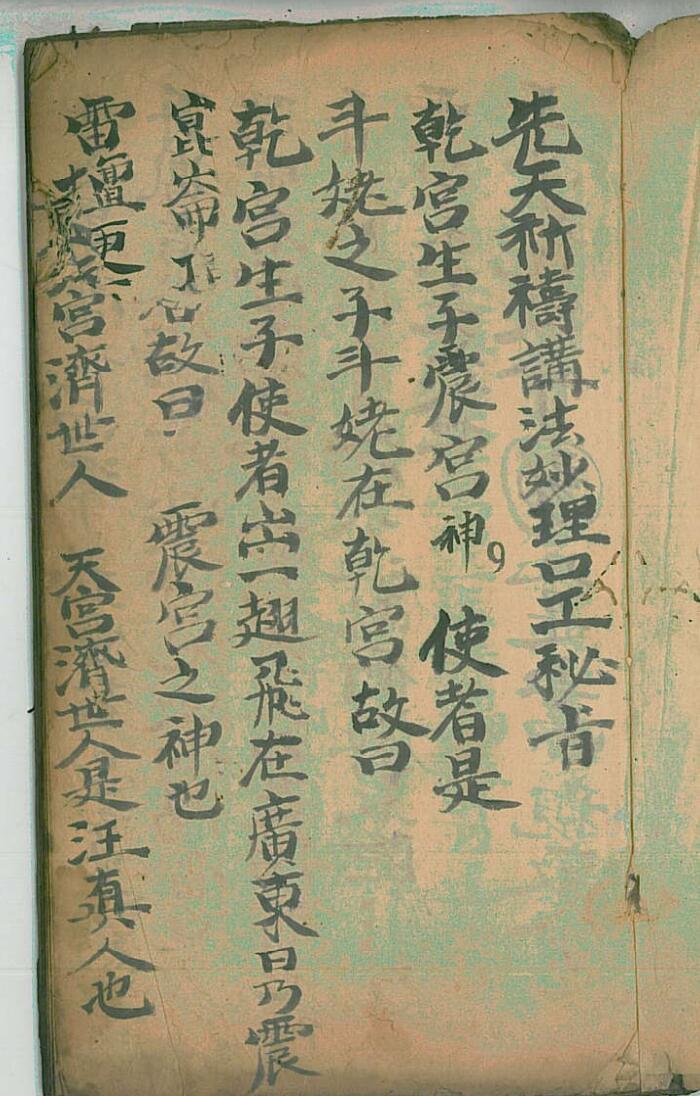 先天祈禱講法妙理口工秘旨
乾宮生子震宮神 9 使者是
斗姥之子斗姥在乾宮故曰
乾宮生子使者出一翅飛在廣東曰乃震
崑崙 故曰 震宮之神也
雷壇 宮濟世人 天宮濟世人是汪真人也